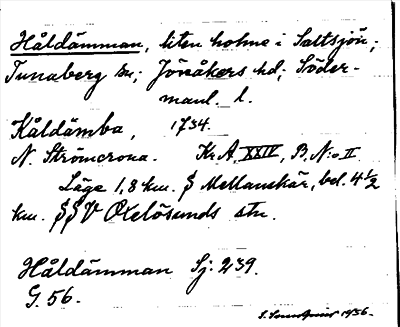 Håldämman, liten holme i Saltsjön;
Tunaberg sn; Jönåkers hd; Söder-
manl. l.
Kåldämba, 1734.
N. Strömcrona. Kr. A. XXIV, B. N:o II
Läge 1,8 km. S Mellanskär, bel. 4 1/2
km. SSV Oxelösunds stn.
Håldämman Sj: 239.
G. 56.
1936.